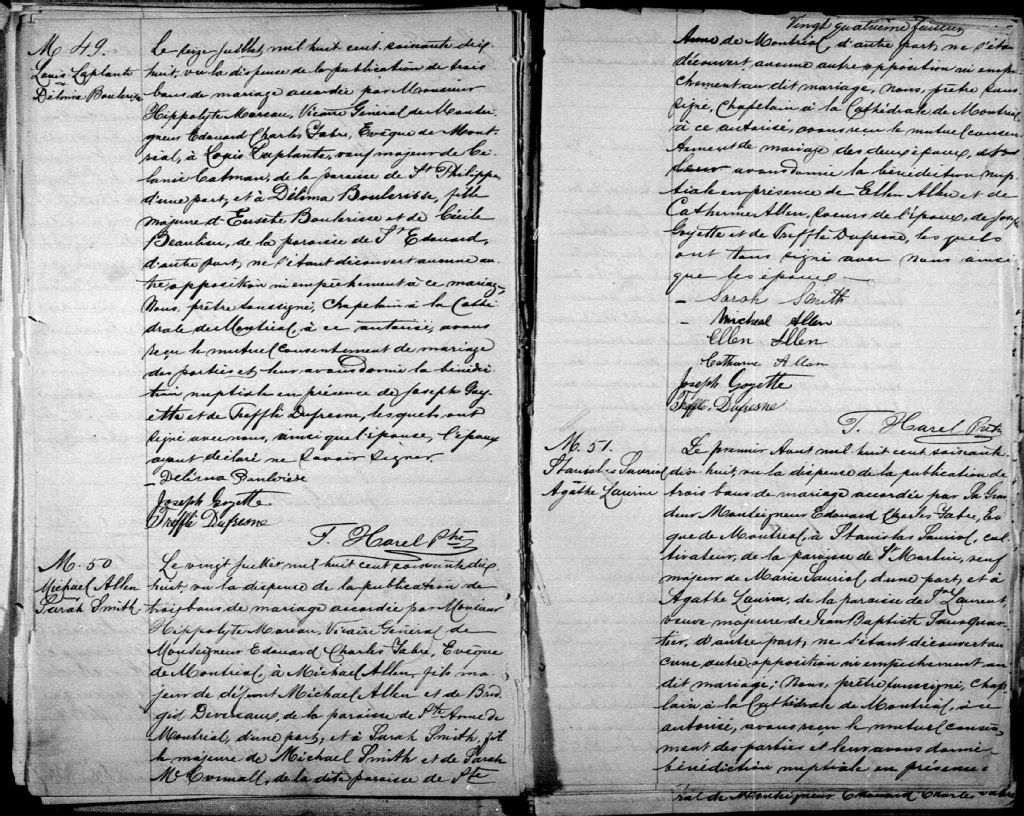 M. 49.
Louis Laplante
Délima Boulerisse
Le seize juillet, mil huit cent soixante dix
huit, vu la dispense de la publication de trois
bans de mariage accordée par Monsieur
Hippolyte Moreau, Vicaire Général de Monsei-
gneur Edouard Charles Fabre, Evêque de Mont-
réal, à Louis Laplante, veuf majeur de
de la paroisse de St Philippe
d'une part, et à Délima Boulerisse, fille
majeure d'Eusèbe Boulerisse et de Cécile
Beaulieu, de la paroisse de St Edouard,
d'autre part, ne s'étant découvert aucune au-
tre opposition ni empêchement à ce mariage,
Nous, prêtre soussigné, Chapelain à la Cathé-
drale de Montréal, à ce autorisé, avons
reçu le mutuel consentement de mariage
des parties et leur avons donné la bénédic-
tion nuptiale en présence de Joseph Goy-
ette et de Treffle Dufresne, lesquels ont
signé avec nous, ainsi que l'épouse, l'époux
ayant déclaré ne savoir signer.
- Delima Boulrisse
Joseph Goyette
Treffle Dufresne
T. Harel Ptre
M. 50
Michael Allen
Sarah Smith
Le vingt juillet mil huit cent soixante dix
huit, vu la dispense de la publication de
trois bans de mariage accordée par Monsieur
Hippolyte Moreau, Vicaire Général de
Monseigneur Edouard Charles Fabre, Evêque
de Montréal, à Michael Allen, fils ma-
jeur de défunt Michael Allen et de Brid-
gid Devereaux, de la paroisse de Ste Anne de
Montréal, d'une part, et à Sarah Smith, fil-
le majeure de Michael Smith et de Sarah
de la dite paroisse de Ste
Vingt quatrième feuillet
Anne de Montréal, d'autre part, ne s'étant
découvert aucune autre opposition ni empê-
chement au dit mariage, Nous, prêtre sous-
signé, Chapelain à la Cathédrale de Montréal
à ce autorisé, avons reçu le mutuel consen-
tement de mariage des deux époux, et
leur avons donné la bénédiction nup-
tiale en présence de Ellen Allen et de
Catherine Allen, soeurs de l'époux, de Joseph
Goyette et de Treffle Dufresne, les quels
ont tous signé avec nous ainsi
que les époux -
- Sarah Smith
- Micheal Allen
Ellen Allen
Catharine Allen
Joseph Goyette
Treffle Dufresne
T. Harel Ptre
M. 51.
Stanislas Sauriol
Agathe Laurin
Le premier Aout mil huit cent soixante
dix huit, vu la dispense de la publication de
trois bans de mariage accordée par Sa Gran-
deur Monseigneur Edouard Charles Fabre, Evê-
que de Montréal, à Stanislas Sauriol, cul-
tivateur, de la paroisse de St Martin, veuf
majeur de Marie Sauriol d'une part, et à
Agathe Laurin, de la paroisse de St Laurent,
veuve majeure de Jean Baptiste
d'autre part, ne s'étant découvert au-
cune autre opposition ni empêchement au
dit mariage; Nous, prêtre soussigné, Chape-
lain à la Cathédrale de Montréal, à ce
autorisé, avons reçu le mutuel consente-
ment des parties et leur avons donné
bénédiction nuptiale en présence
ral de Monseigneur Edouard Charles